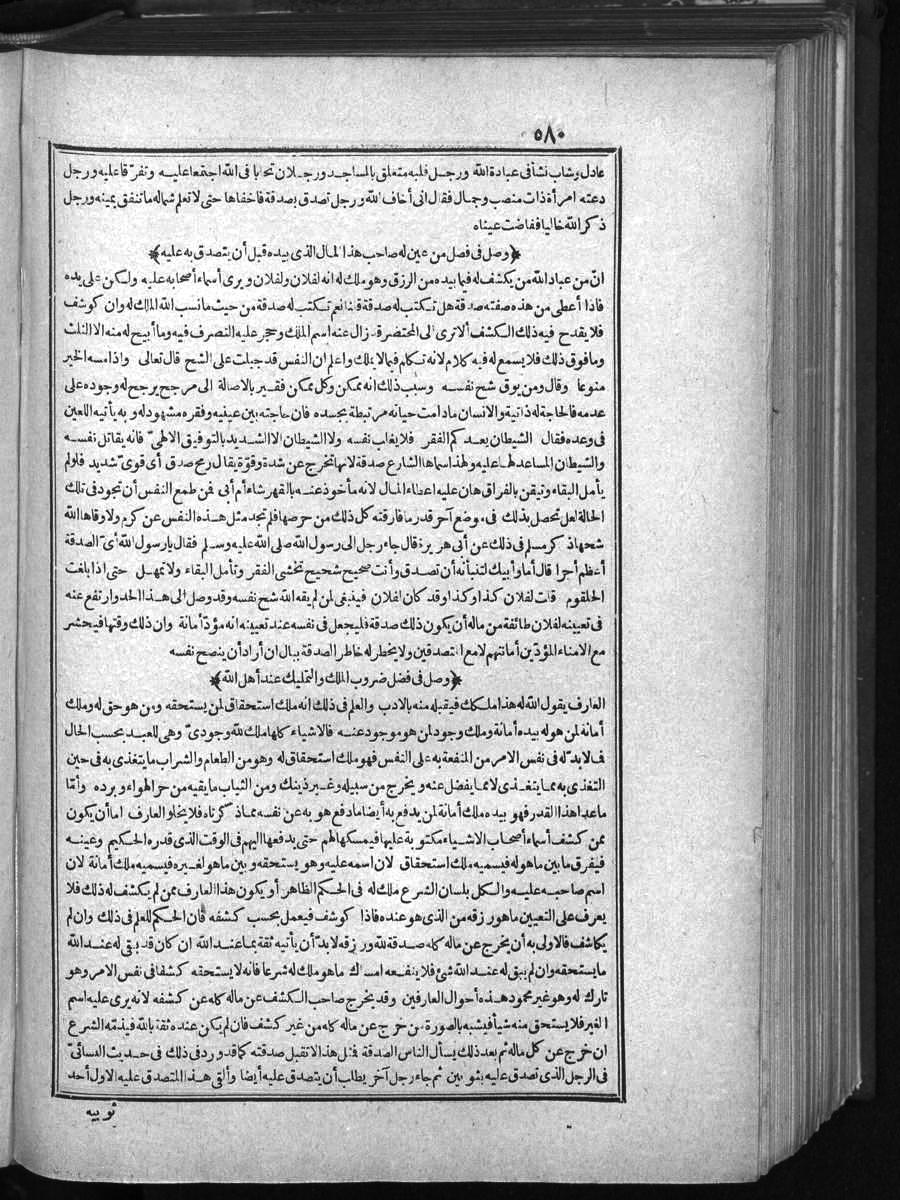 ٥٨٠
عادل وشاب نشأ فى عبادة الله ورجل قلبه متعلق بالمساجد ورجلان تحابا فى الله اجتمعا عليه وتفرقا عليه ورجل
دعته امرأة ذات منصب وجمال فقال انى أخاف الله ورجل تصدق بصدقة فاخفاها حتى لا تعلم شماله ما تنفق يمينه ورجل
ذكر الله خاليا ففاضت عيناه
﴿وصل فى فصل من عين له صاحب هذا المال الذى بيده قبل أن يتصدق به عليه﴾
انّ من عباد الله من يكشف له فيما بيده من الرزق وهو ملك له انه لفلان ولفلان ويرى أسماء أصحابه عليه ولكن على يده
فاذا أعطى من هذه صفته صدقة هل تكتب له صدقة قلنا نعم تكتب له صدقة من حيث ما نسب الله الملك له وان كوشف
فلا يقدح فيه ذلك الكشف ألا ترى الى المحتضر قد زال عنه اسم الملك وحجر عليه التصرف فيه وما أبيح له منه الا الثلث
وما فوق ذلك فلا يسمع له فيه كلام لانه تكلم فيما لا يملك واعلم ان النفس قد جبلت على الشح قال تعالى واذا مسه الخير
منوعا وقال ومن يوق شح نفسه وسبب ذلك انه ممكن وكل ممكن فقير بالاصالة الى مرجح يرجح له وجوده على
عدمه فالحاجة له ذاتية والانسان ما دامت حياته مرتبطة بجسده فان حاجته بين عينيه وفقره مشهود له وبه يأتيه اللعين
فى وعده فقال الشيطان يعدكم الفقر فلا يغلب نفسه ولا الشيطان الا الشديد بالتوفيق الالهىّ فانه يقاتل نفسه
والشيطان المساعد لها عليه ولهذا سماها الشارع صدقة لانها تخرج عن شدة وقوّة يقال رمح صدق أى قوىّ شديد فلو لم
يأمل البقاء وتيقن بالفراق هان عليه اعطاء المال لانه مأخوذ عنه بالقهر شاء أم أبى فمن طمع النفس أن تجود فى تلك
الحالة لعل تحصل بذلك فى موضع آخر قدر ما فارقته كل ذلك من حرصها فلم تجد مثل هذه النفس عن كرم ولا وقاها الله
شحها ذكر مسلم فى ذلك عن أبى هريرة قال جاء رجل الى رسول الله صلى الله عليه وسلم فقال يا رسول الله أىّ الصدقة
أعظم أجرا قال أما وأبيك لتنبأنه أن تصدق وأنت صحيح شحيح تخشى الفقر وتأمل البقاء ولا تمهل حتى اذا بلغت
الحلقوم قلت لفلان كذا وكذا وقد كان لفلان فينبغى لمن لم يقه الله شح نفسه وقد وصل الى هذا الحد وارتفع عنه
فى تعيينه لفلان طائفة من ماله أن يكون ذلك صدقة فليجعل فى نفسه عند تعيينه انه مؤدّ أمانة وان ذلك وقتها فيحشر
مع الامناء المؤدّين أماناتهم لا مع المتصدقين ولا يخطر له خاطر الصدقة ببال ان أراد أن ينصح نفسه
﴿وصل فى فضل ضروب الملك والتمليك عند أهل الله﴾
العارف يقول الله له هذا ملكك فيقبله منه بالادب والعلم فى ذلك انه ملك استحقاق لمن يستحقه ومن هو حق له وملك
أمانة لمن هو له بيده أمانة وملك وجود لمن هو موجود عنه فالاشياء كلها ملك لله وجودىّ وهى للعبد بحسب الحال
فما لا بدّ له فى نفس الامر من المنفعة به على النفس فهو ملك استحقاق له وهو من الطعام والشراب ما يتغذى به فى حين
التغذى به مما يتغذى لا مما يفضل عنه ويخرج من سبيله وغير ذينك ومن الثياب ما يقيه من حر الهواء وبرده وأمّا
ما عدا هذا القدر فهو بيده ملك أمانة لمن يدفع به أيضا ما دفع هو به عن نفسه مما ذكرناه فلا يخلو العارف اما أن يكون
ممن كشف أسماء أصحاب الاشياء مكتوبة عليها فيمسكها لهم حتى يدفعها اليهم فى الوقت الذى قدره الحكيم وعينه
فيفرق ما بين ما هو له فيسميه ملك استحقاق لان اسمه عليه وهو يستحقه وبين ما هو لغيره فيسميه ملك أمانة لان
اسم صاحبه عليه والكل بلسان الشرع ملك له فى الحكم الظاهر أو يكون هذا العارف ممن لم يكشف له ذلك فلا
يعرف على التعيين ما هو رزقه من الذى هو عنده فاذا كوشف فيعمل بحسب كشفه فان الحكم للعلم فى ذلك وان لم
يكاشف فالاولى به أن يخرج عن ماله كله صدقة لله ورزقه لا بدّ أن يأتيه ثقة بما عند الله ان كان قد بقى له عند الله
ما يستحقه وان لم يبق له عند الله شئ فلا ينفعه امساك ما هو ملك له شرعا فانه لا يستحقه كشفا فى نفس الامر وهو
تارك له وهو غير محمود هذه أحوال العارفين وقد يخرج صاحب الكشف عن ماله كله عن كشفه لانه يرى عليه اسم
الغير فلا يستحق منه شيأ فيشبه بالصورة من خرج عن ماله كله من غير كشف فان لم يكن عنده ثقة بالله فيذمّه الشرع
ان خرج عن كل ماله ثم بعد ذلك يسأل الناس الصدقة فمثل هذا لا تقبل صدقته كما قد ورد فى ذلك فى حديث النسائىّ
فى الرجل الذى تصدق عليه بثوبين ثم جاء رجل آخر يطلب أن يتصدق عليه أيضا وألقى هذا المتصدق عليه الاول أحد
ثوبيه